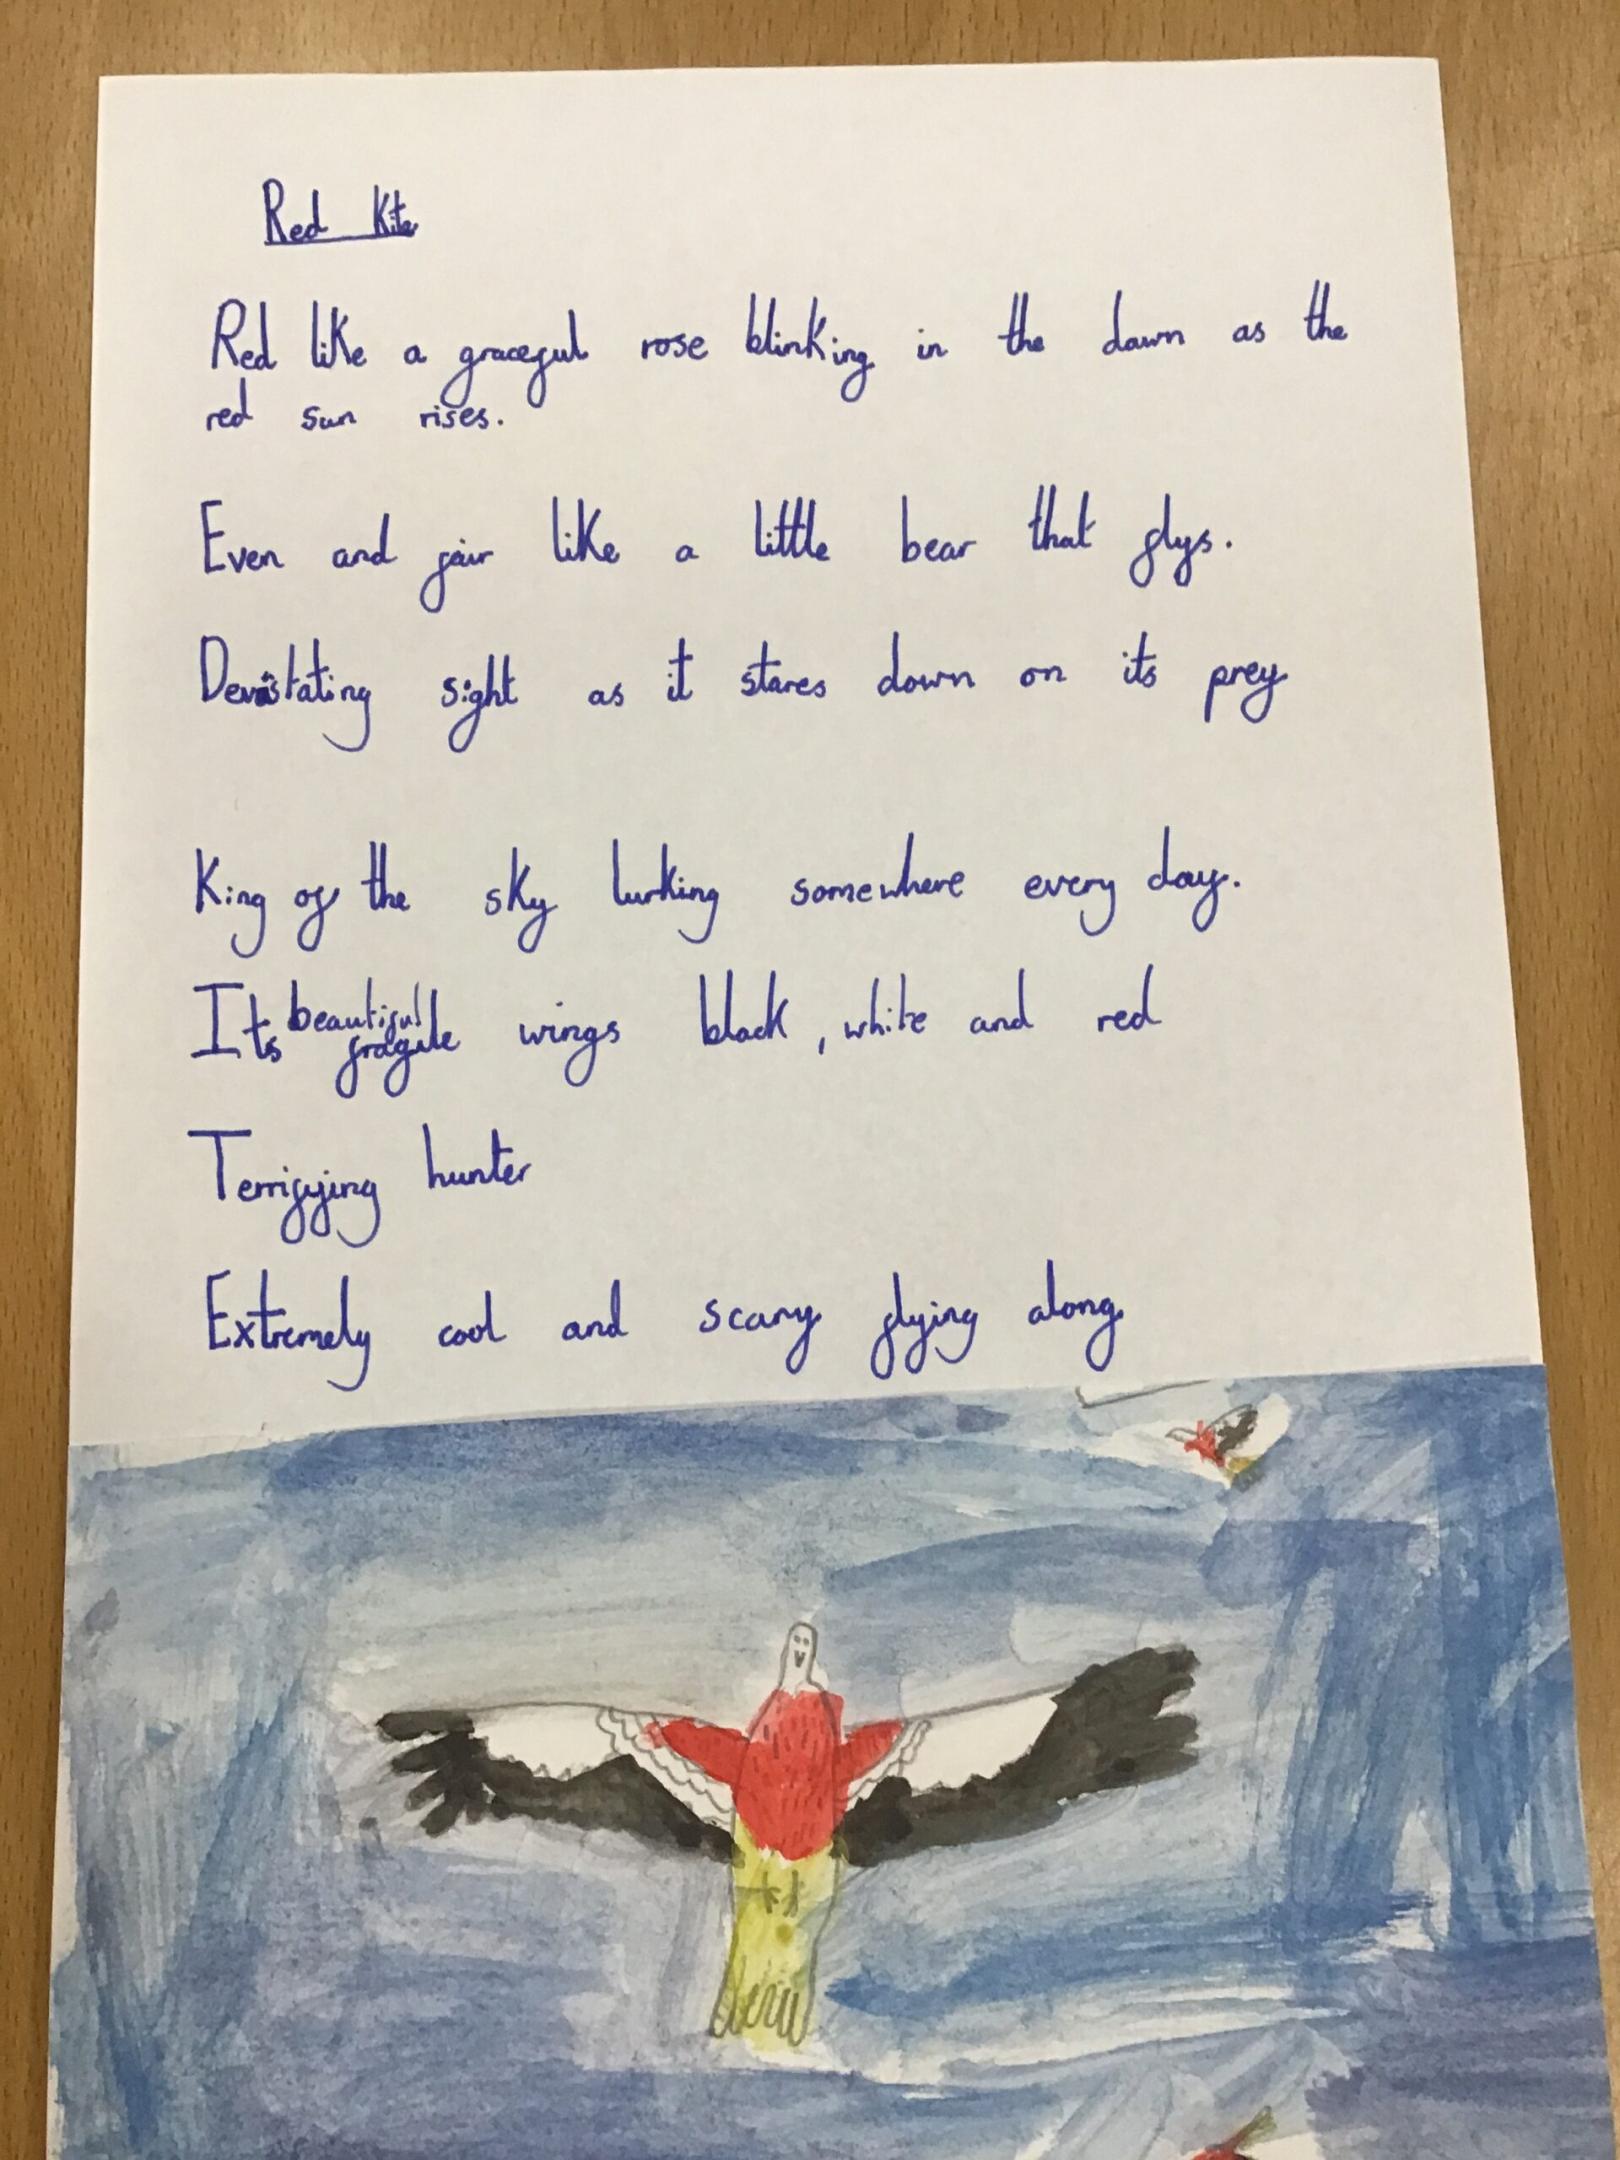 Red Kite
Red like a graceful rose blinking in the dawn as the
red sun rises.
Even and fair like a little bear that flys.
Devastating sight as it stares down on its prey
King of the sky lurking somewhere every day.
Its beautiful fragile wings black, white and red
Terrifying hunter
Extremely cool and scary flying along